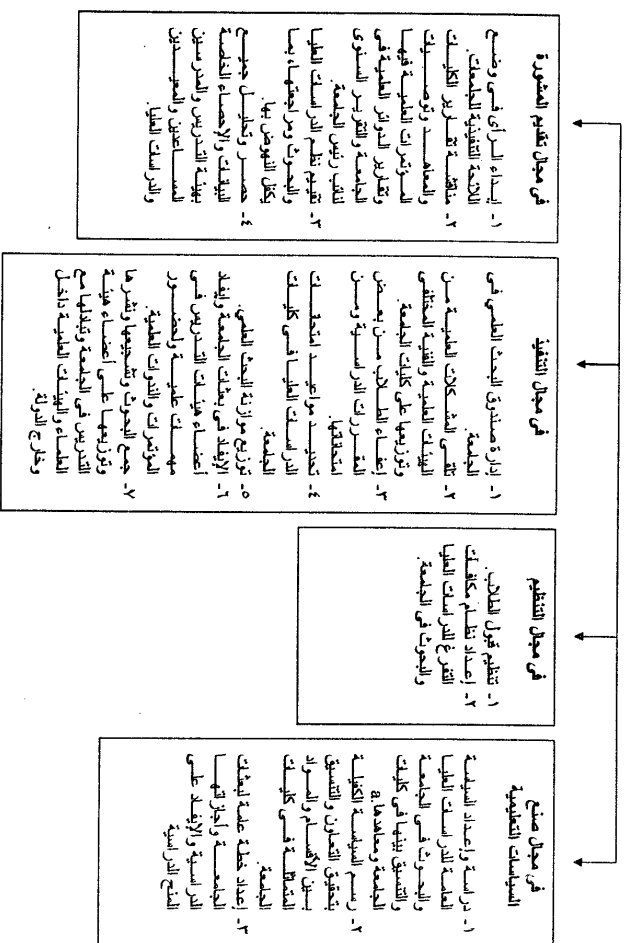 فى مجال صنع
السياسات التعليمية
١- دراسة وإعداد السياسة
العامة للدراسات العليا
والبحوث فى الجامعة
والتنسيق بينها فى كليات
الجامعة ومعاهدها.a
٢- رسم السياسة الكفيلة
بتحقيق التعاون والتنسيق
بين الأقسام والمواد
المتماثلة فى كليات
الجامعة.
٣- إعداد خطة عامة لبعثات
الجامعة وإجازاتها
الدراسية والإيفاد على
المنح الدراسية
فى مجال التنظيم
١- تنظيم قبول الطلاب.
٢- إعداد نظام مكافآت
التفرغ للدراسات العليا
والبحوث فى الجامعة.
فى مجال التنفيذ
١- إدارة صندوق البحث العلمي فى
الجامعة.
٢- تلقى المشكلات العلمية من
الهيئات العلمية والفنية المختلفى
وتوزيعها على كليات الجامعة.
٣- إعفاء الطلاب من بعض
المقررات الدراسية ومن
امتحاناتها.
٤- تحديد مواعيد امتحانات
الدراسات العليا فى كليات
الجامعة.
٥- توزيع موازنة البحث العلمي.
٦- الإيفاد فى بعثات الجامعة وإيفاد
أعضاء هيئات التدريس فى
مهمات علمية ولحضور
المؤتمرات والندوات العلمية.
٧- جمع البحوث وتشجيعها ونشرها
وتوزيعها على أعضاء هيئة
التدريس فى الجامعة وتبادلها مع
العلماء والهيئات العلمية داخل
وخارج الدولة.
فى مجال تقديم المشورة
١- إبداء الرأى فى وضع
اللائحة التنفيذية للجامعات.
٢- مناقشة تقارير الكليات
والمعاهد وتوصيات
المؤتمرات العلمية فيها
وتقارير الدوائر العلمية فى
الجامعة والتقرير السنوى
لنائب رئيس الجامعة.
٣- تقييم نظم الدراسات العليا
والبحوث ومراجعتها بما
يكفل النهوض بها.
٤- حصر وتحليل جميع
البيانات والإحصاء الخاصة
بهيئة التدريس والمدرسين
المساعدين والمعيدين
والدراسات العليا.